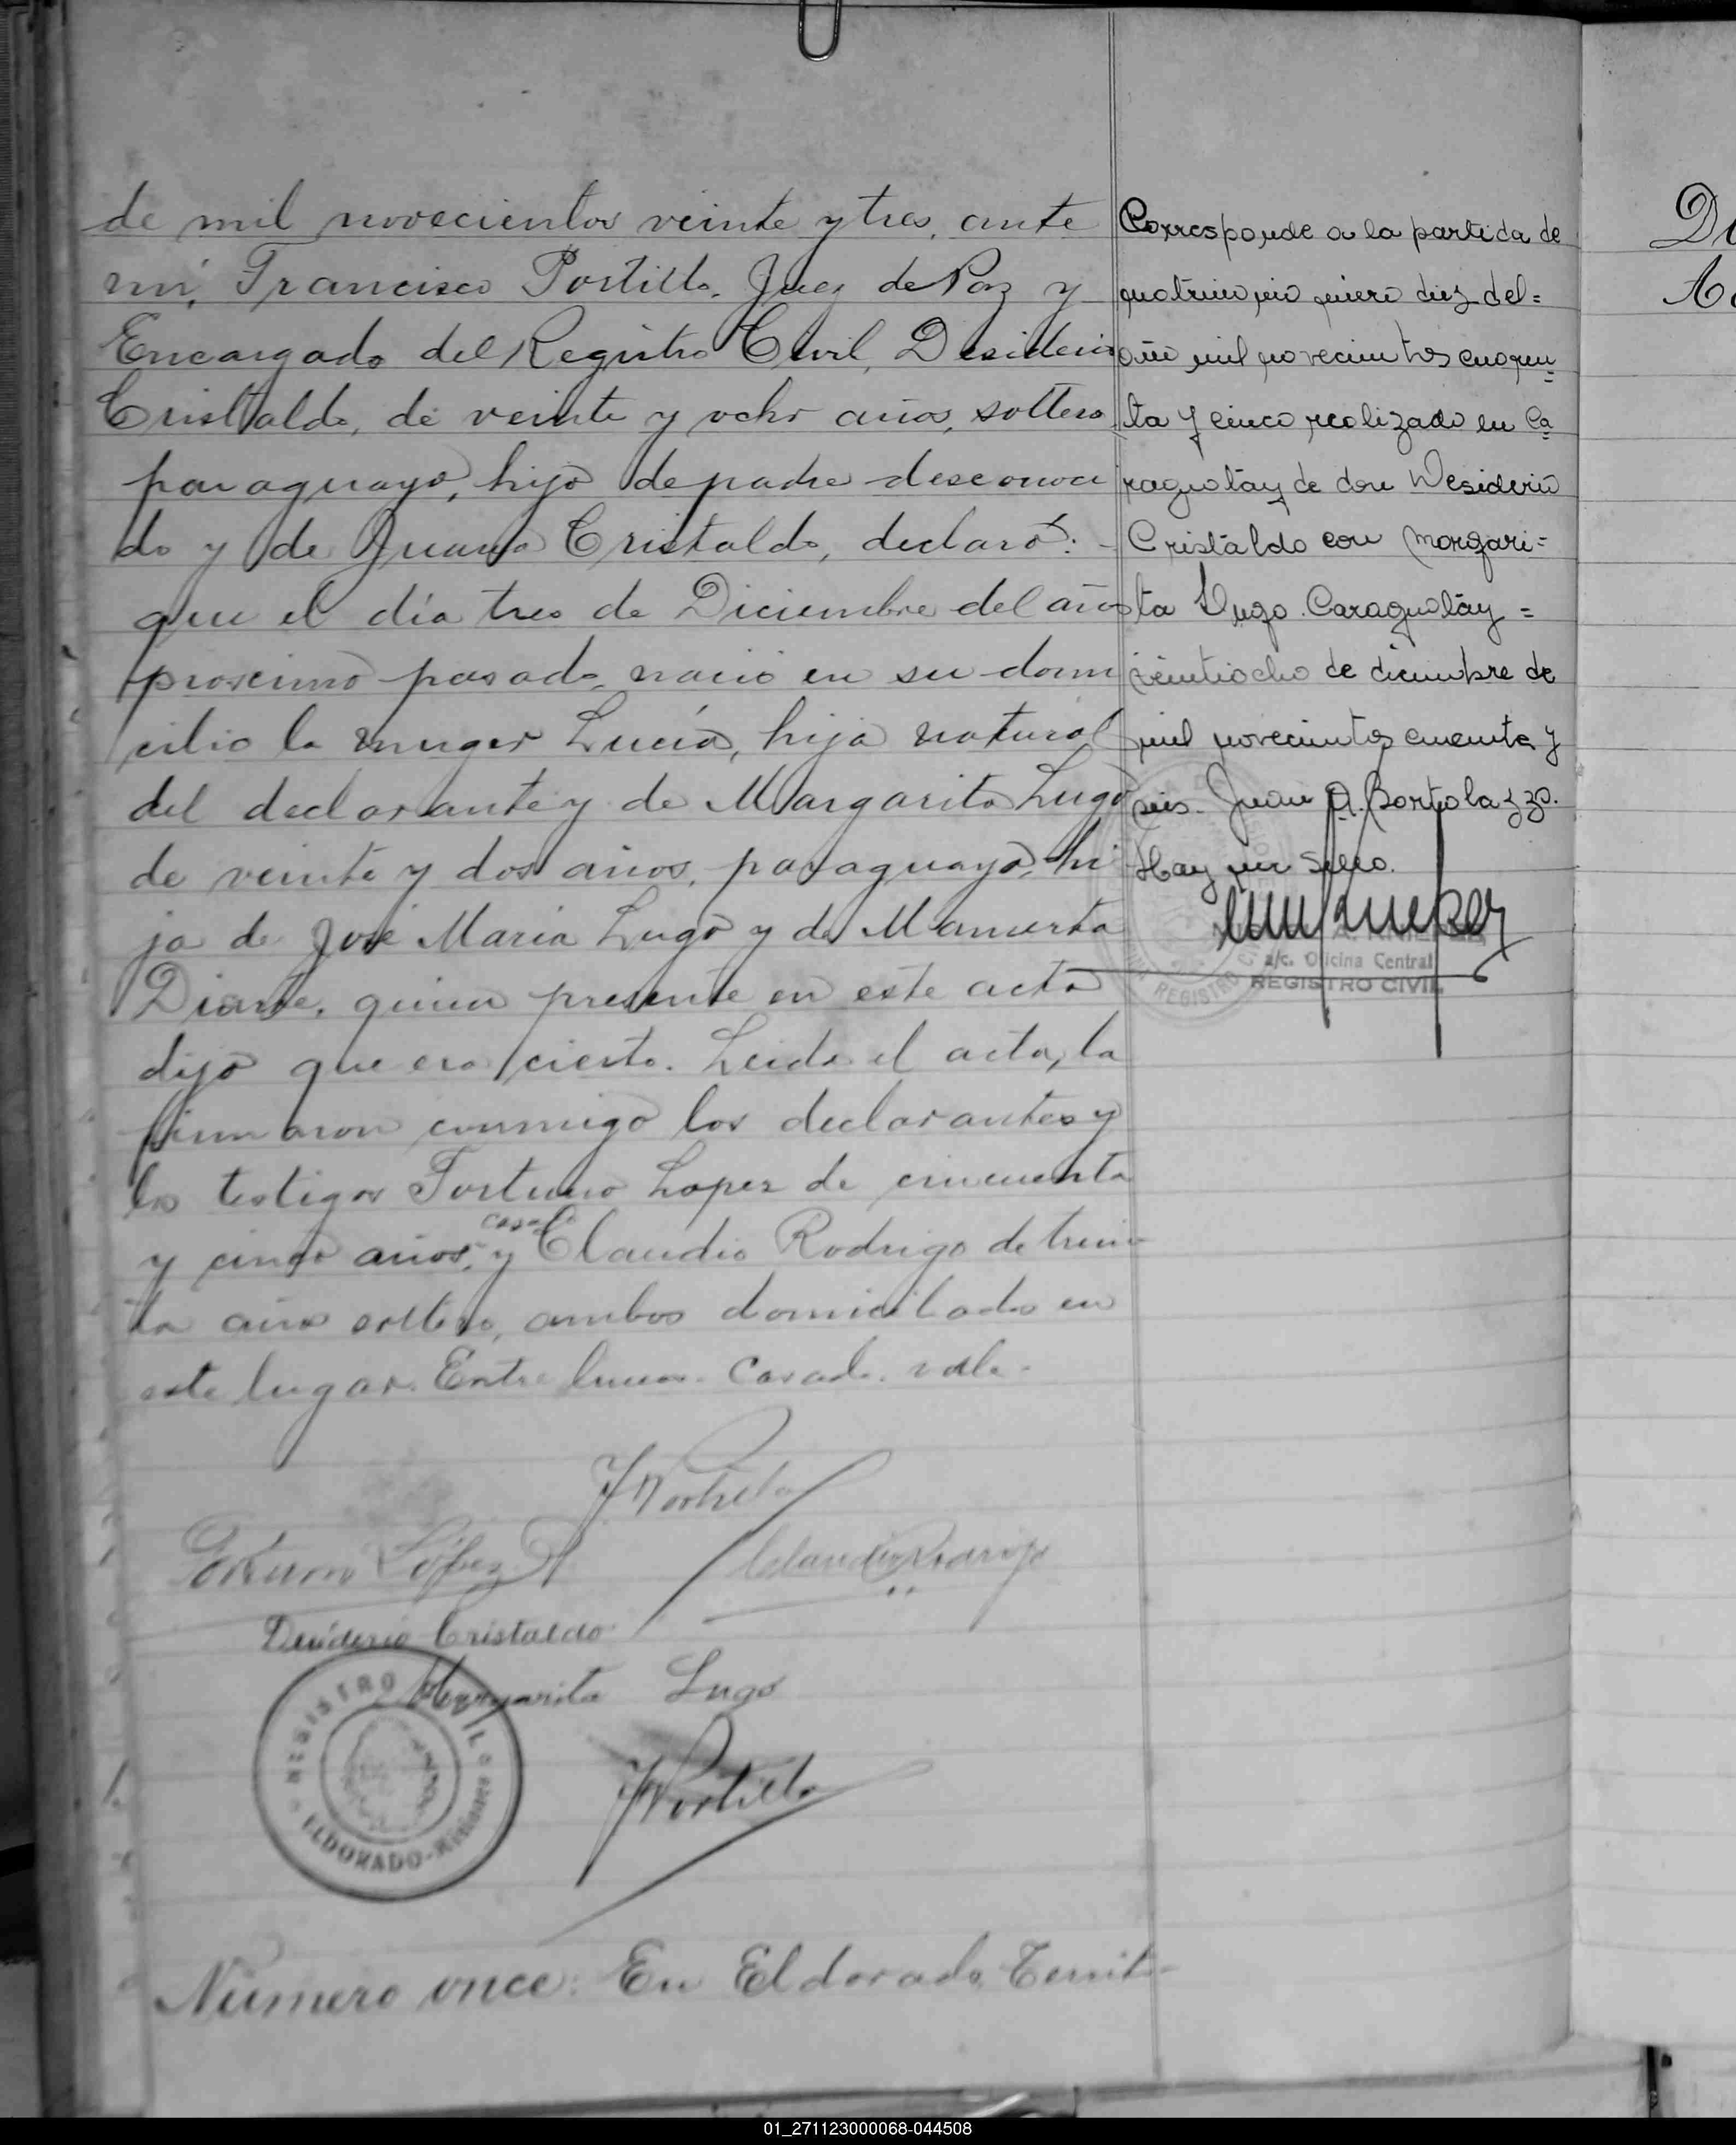 de mil novecientos veinte y tres, ante
mi, Francisco Portillo, Juez de Paz y
Encargado del Registro Civil, Desiderio
Cristaldo, de veinte y ocho años, soltero
paraguayo, hijo de padre desconoci
do y de Juana Cristaldo, declaró: -
que el día tres de Diciembre del año
proximo pasado, nació en su domi
cilio la muger Lucía, hija natural
del declarante y de Margarita Lugo
de veinte y dos años, paraguaya, hi
ja de José Maria Lugo y de Mamerta
Diarte, quien presente en este acto
dijo que era cierto. Leida el acta, la
firmaron conmigo los declarantes y
los testigos Fortuno Lopez de cincuenta
casado
y cinco años, y Claudio Rodrigo de trein
ta años soltero, ambos domicilado en
este lugar. Entre lineas. Casado. vale.
F Portillo
Fortuno López
Claudio Rodrigo
Desiderio Cristaldo
Margarita Lugo
REGISTRO CIVIL
ELDORADO - Misiones
F Portillo
Número once: En Eldorado, Territ-
Corresponde a la partida de
diez del=
año mil novecientos cuaren=
ta y cinco realizado en Ca=
raguatay de don Desiderio
Cristaldo con Margari=
ta Lugo. Caraguatay =
veintiocho de diciembre de
mil novecientos cincuenta y
seis. Juan A. Bortolazzo.
Hay un sello.
a/c. Oficina Central
REGISTRO CIVIL
REGISTRO
01_271123000068-044508